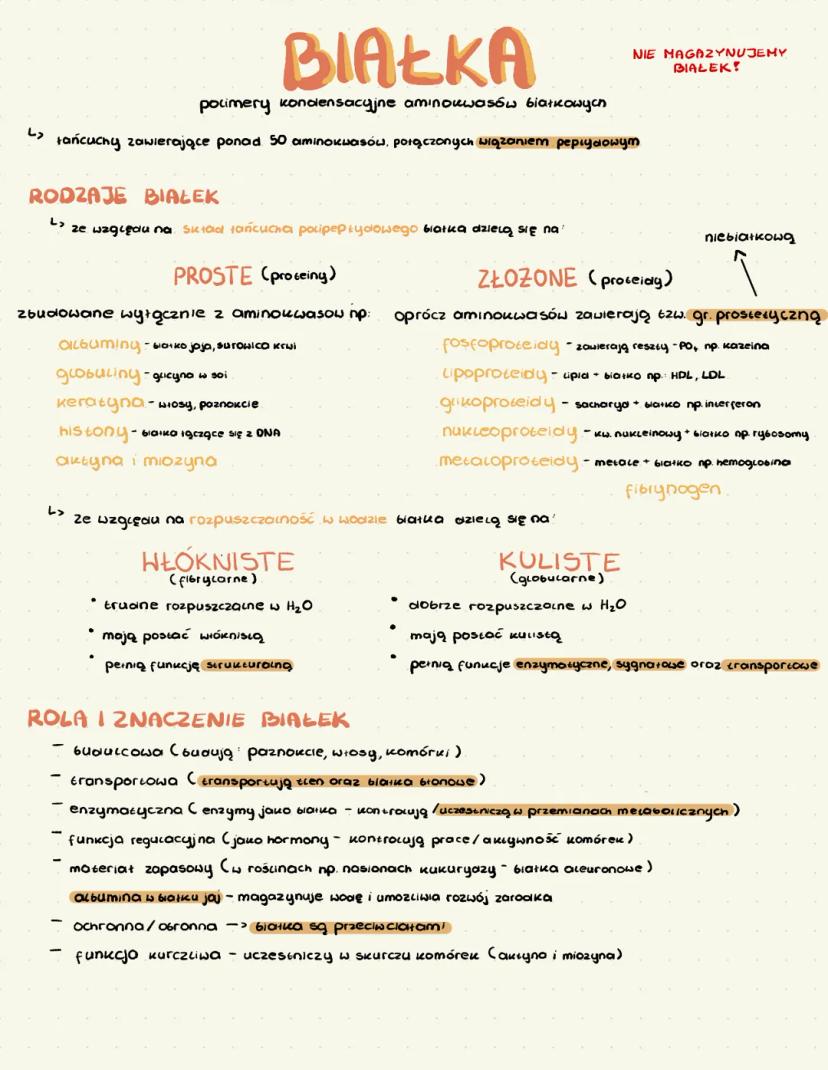 BIAŁKA
NIE MAGAZYNUJEMY
BIAŁEK!
polimery kondensacyjne aminokwasów białkowych
↳ łańcuchy zawierające ponad 50 aminokwasów, połączonych wiązaniem peptydowym
RODZAJE BIAŁEK
↳ ze względu na skład łańcucha polipeptydowego białka dzielą się na:
niebiałkową
PROSTE (proteiny)
ZŁOŻONE (proteidy)
zbudowane wyłącznie z aminokwasow np:
oprócz aminokwasów zawierają tzw. gr. prostetyczną
albuminy - białko jaja, surowica krwi
fosfoproteidy - zawierają reszty -PO₄ np. kazeina
globuliny - glicyna w soi
lipoproteidy - lipid + białko np.: HDL, LDL
keratyna - włosy, paznokcie
glikoproteidy - sacharyd + białko np. interferon
histony - białka łączące się z DNA
nukleoproteidy - kw. nukleinowy + białko np. rybosomy
aktyna i miozyna
metaloproteidy - metale + białko np. hemoglobina
fibrynogen
↳ ze względu na rozpuszczalność w wodzie białka dzielą się na:
WŁÓKNISTE
(fibrylarne)
KULISTE
(globularne)
• trudne rozpuszczalne w H₂O
• dobrze rozpuszczalne w H₂O
• mają postać włóknistą
• mają postać kulistą
• pełnią funkcję strukturalną
• pełnią funkcje enzymatyczne, sygnałowe oraz transportowe
ROLA I ZNACZENIE BIAŁEK
- budulcowa (budują: paznokcie, włosy, komórki)
- transportowa (transportują tlen oraz białka błonowe)
- enzymatyczna (enzymy jako białka - kontrolują /uczestniczą w przemianach metabolicznych)
- funkcja regulacyjna (jako hormony - kontrolują prace/aktywność komórek)
- materiał zapasowy (w roślinach np. nasionach kukurydzy - białka aleuronowe)
albumina w białku jaj - magazynuje wodę i umożliwia rozwój zarodka
- ochronna/obronna -> białka są przeciwciałami!
- funkcja kurczliwa - uczestniczy w skurczu komórek (aktyna i miozyna)